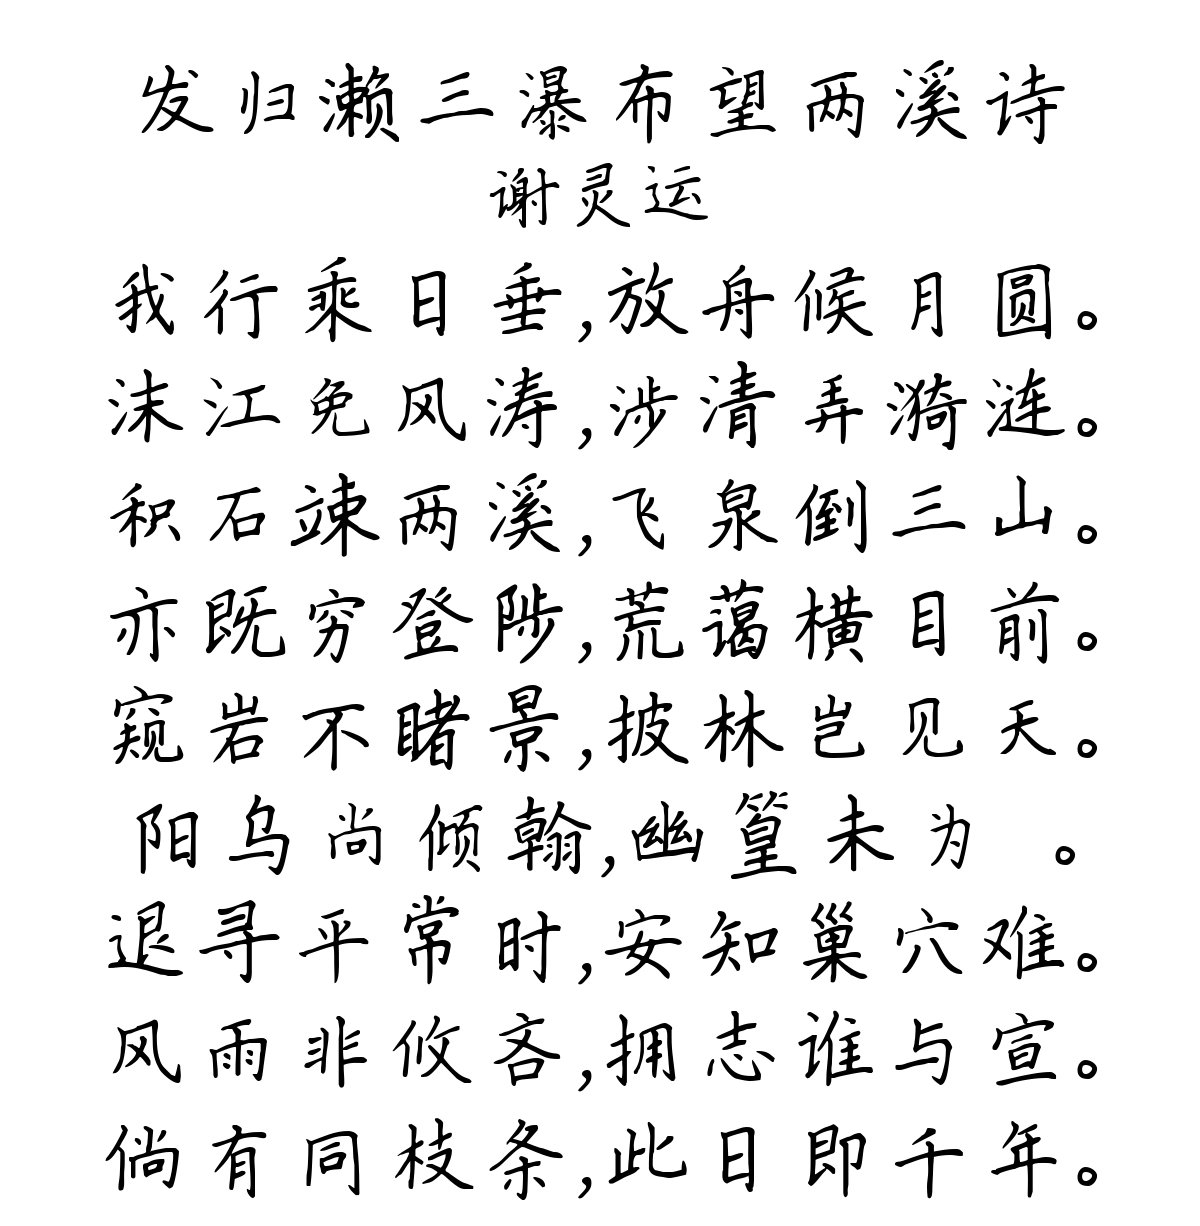 发归濑三瀑布望两溪诗
谢灵运
我行乘日垂,放舟候月圆。
沫江免风涛,涉清弄漪涟。
积石竦两溪,飞泉倒三山。
亦既穷登陟,荒蔼横目前。
窥岩不睹景,披林岂见天。
阳乌尚倾翰,幽篁未为 。
退寻平常时,安知巢穴难。
风雨非攸吝,拥志谁与宣。
倘有同枝条,此日即千年。